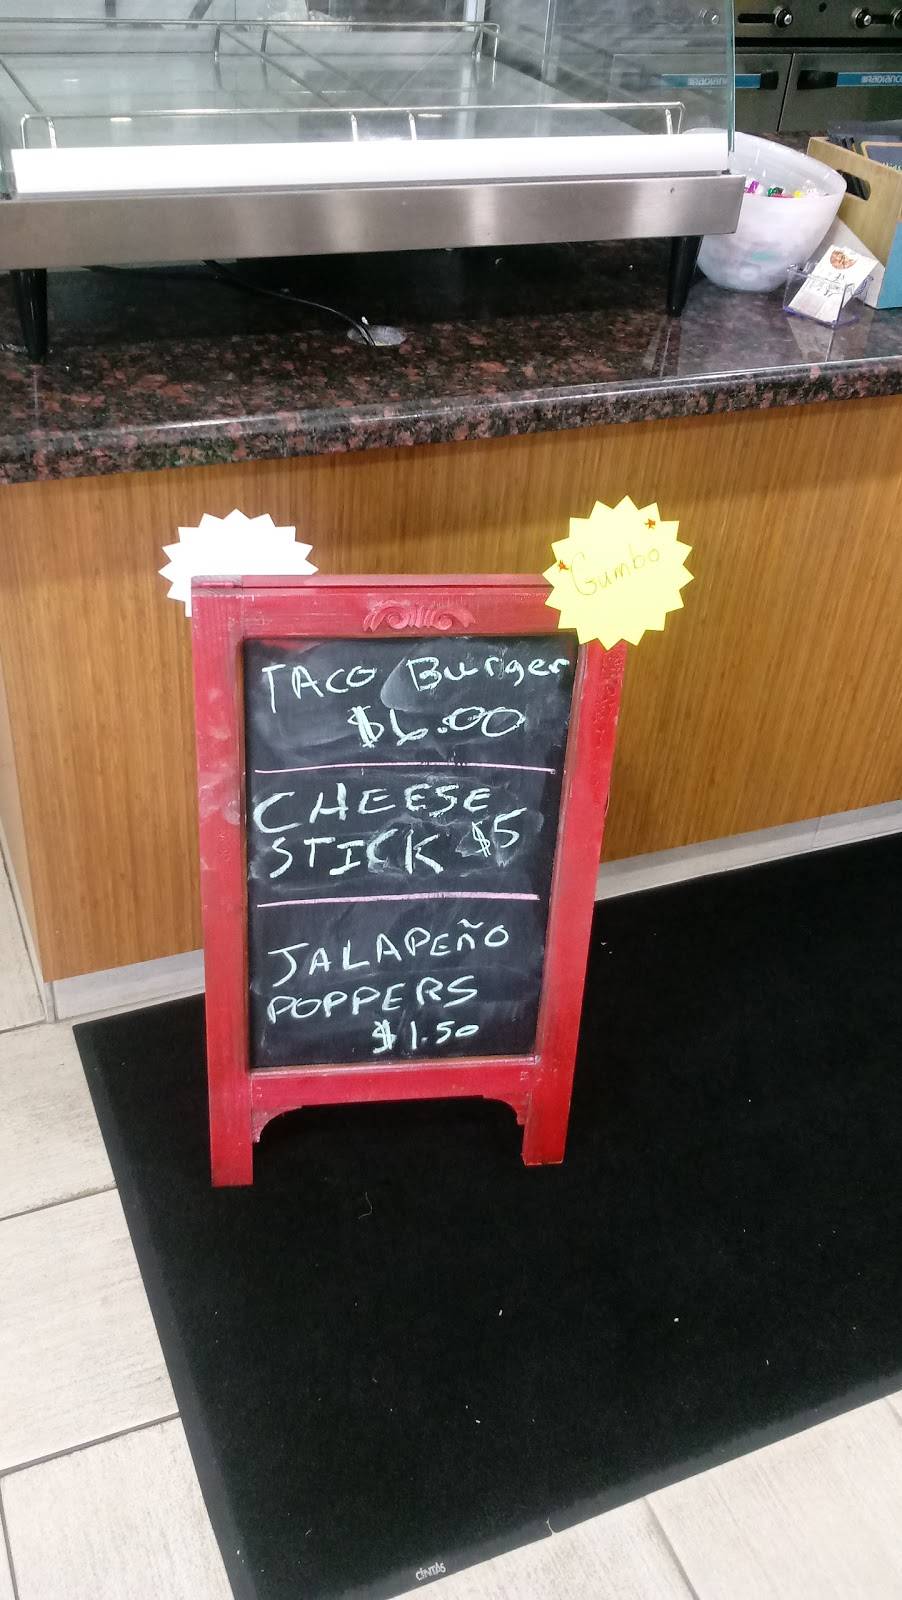 Gumbo
TACO Burger
$6.00
CHEESE
STICK $5
JALAPEÑO
POPPERS
$1.50
CINTAS